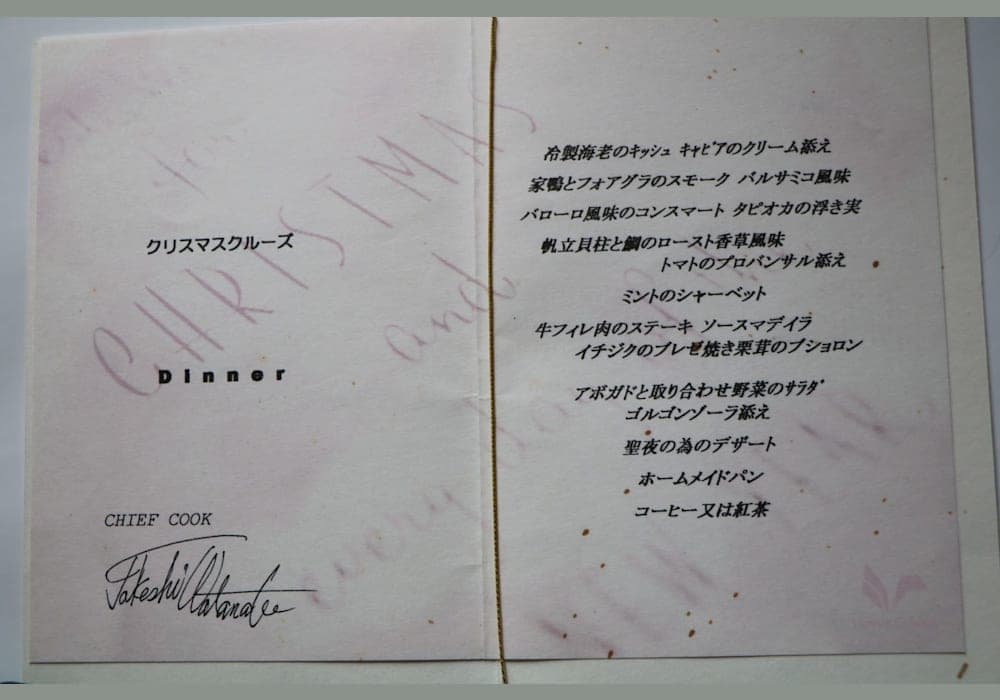 クリスマスクルーズ
Dinner
CHIEF COOK
Takeshi Watanabe
冷製海老のキッシュ キャビアのクリーム添え
家鴨とフォアグラのスモーク バルサミコ風味
バローロ風味のコンスマート タピオカの浮き実
帆立貝柱と鯛のロースト香草風味
トマトのプロバンサル添え
ミントのシャーベット
牛フィレ肉のステーキ ソースマデイラ
イチジクのブレゼ焼き栗茸のブショロン
アボガドと取り合わせ野菜のサラダ
ゴルゴンゾーラ添え
聖夜の為のデザート
ホームメイドパン
コーヒー又は紅茶
CHRISTMAS
and
every